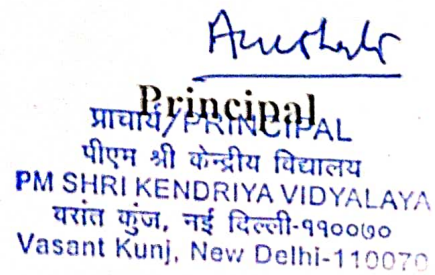 Principal
प्राचार्य/PRINCIPAL
पीएम श्री केन्द्रीय विद्यालय
PM SHRI KENDRIYA VIDYALAYA
वसंत कुंज, नई दिल्ली-११००७०
Vasant Kunj, New Delhi-110070